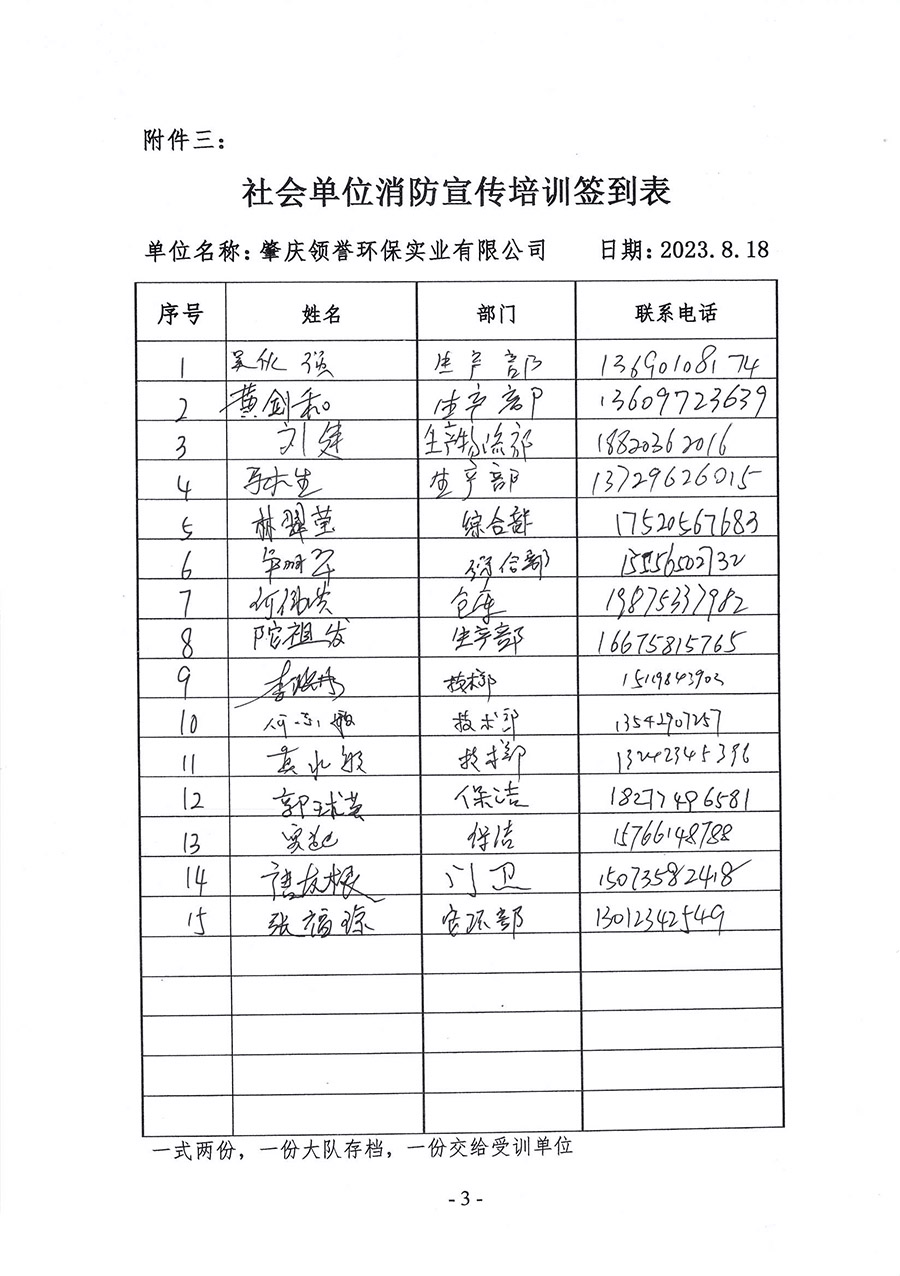 附件三：
社会单位消防宣传培训签到表
单位名称：肇庆领誉环保实业有限公司 日期：2023.8.18
序号 姓名 部门 联系电话
1 生产部 13690108174
2 黄剑和 生产部 13609723639
3 刘建 生产物流部 18820362016
4 生产部 13729626015
5 林翠莹 综合部 17520567683
6 综合部
7 何伟洪 仓库 19875337982
8 陀祖发 生产部 16675815765
9 技术部 15119843902
10 何志敏 技术部 13542907257
11 技术部 13242345396
12 郭球英 保洁 18277496581
13 保洁 15766148788
14 唐友根 门卫 15073582418
15 张福琼 安环部 13012342549
一式两份，一份大队存档，一份交给受训单位
- 3 -